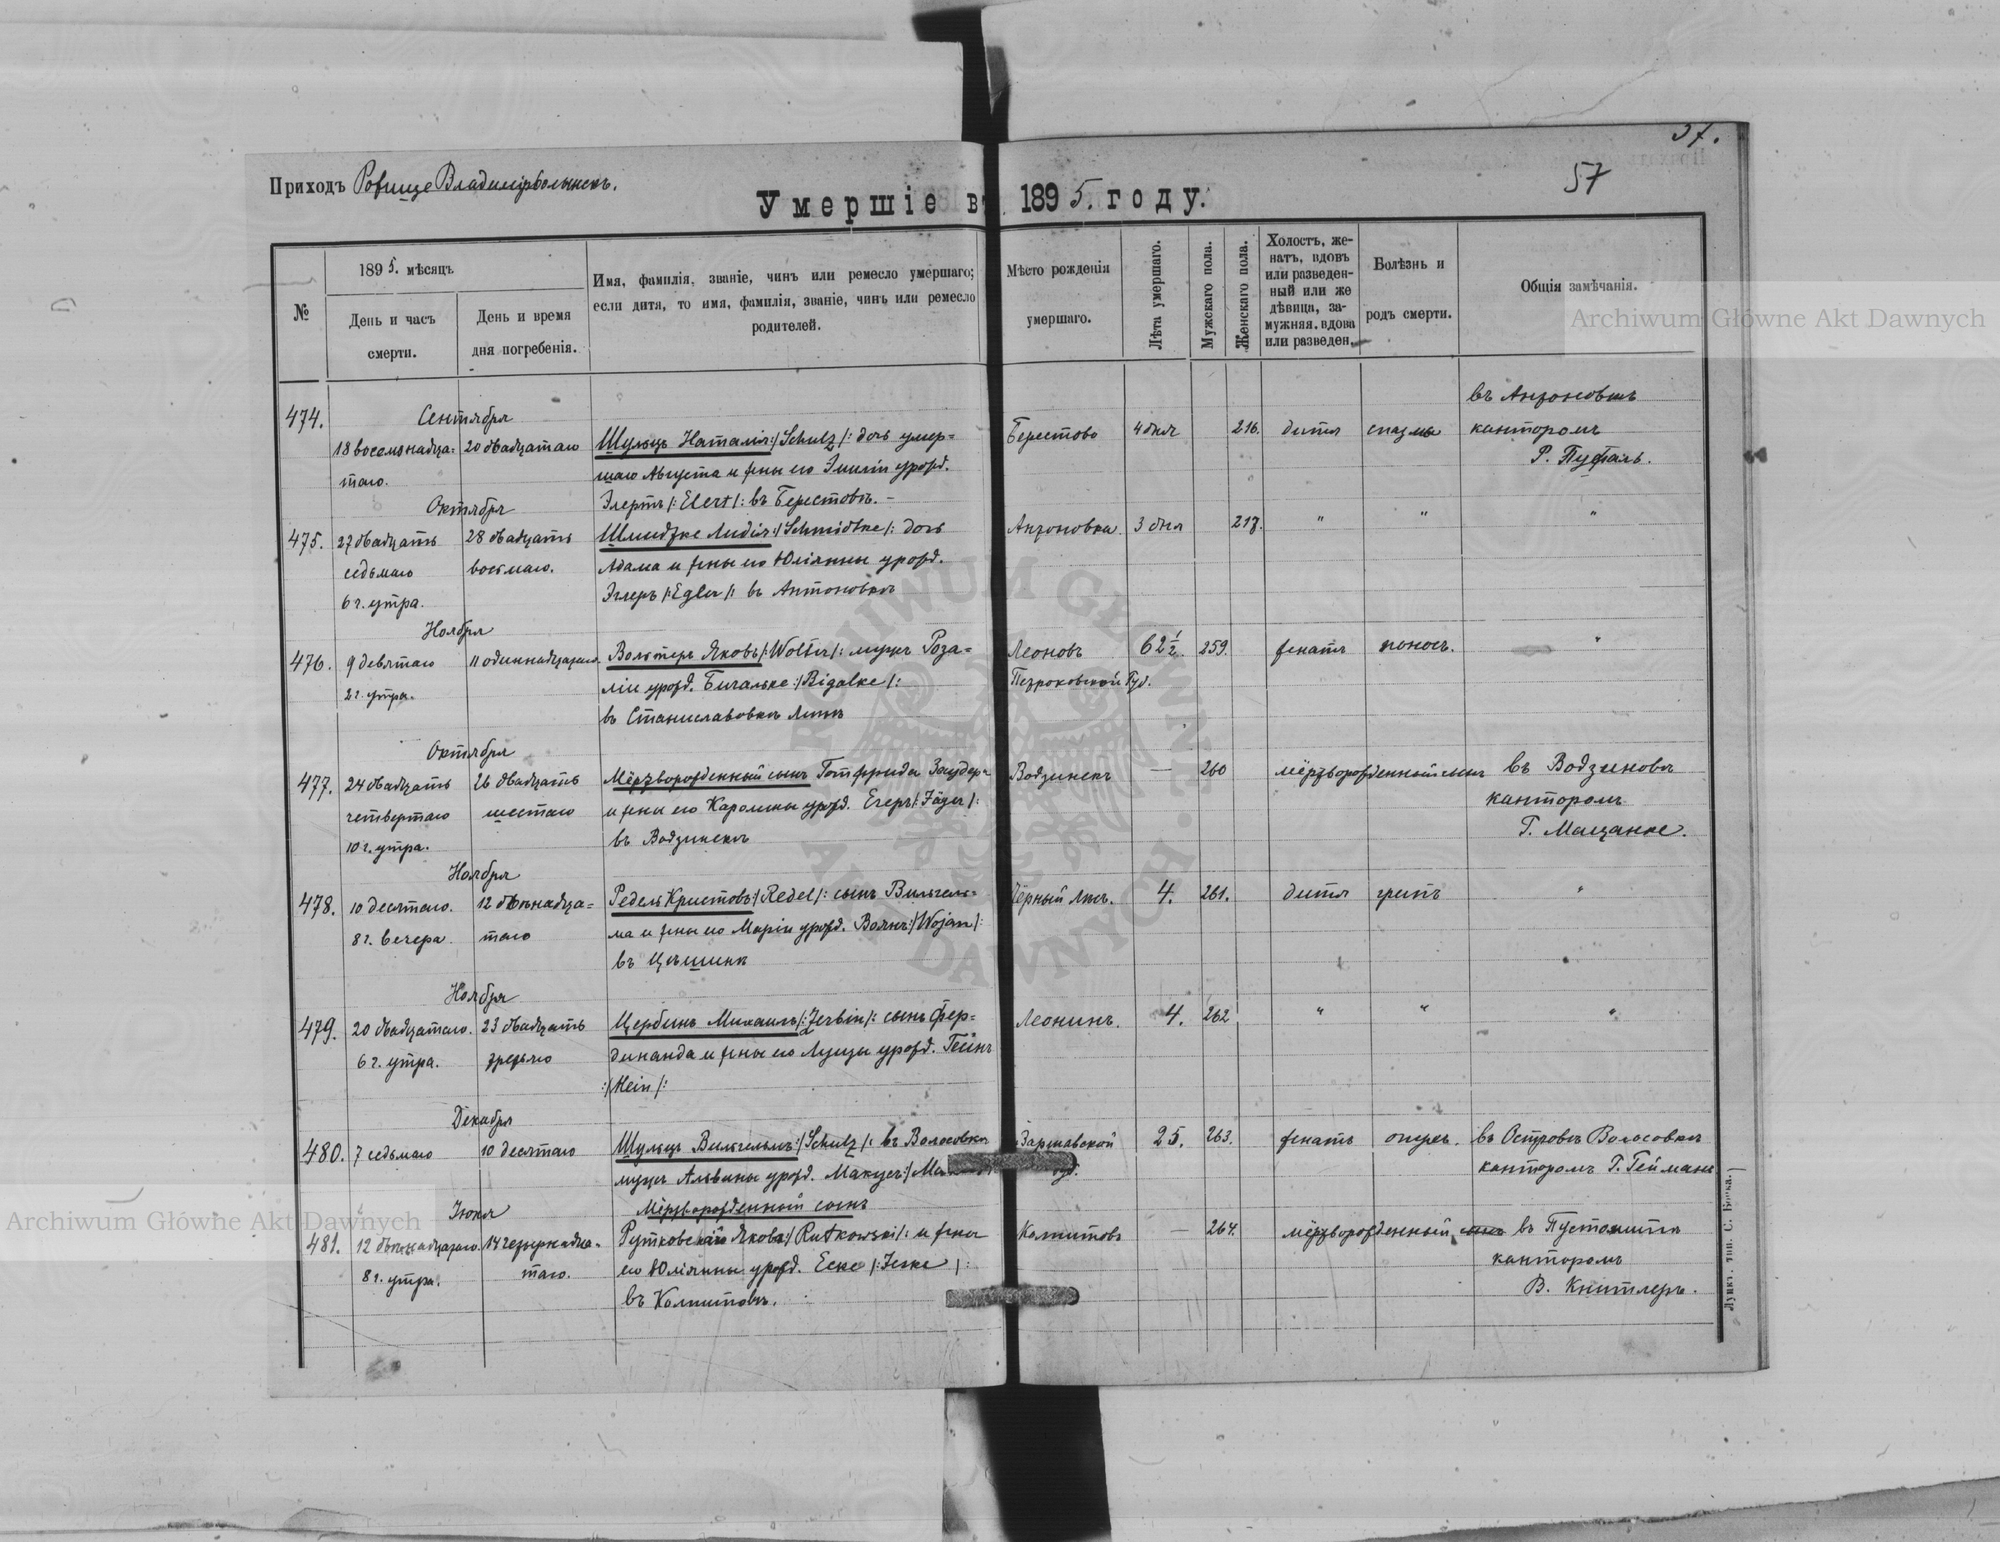 37.
57
Приходъ Ровище Владимірволынскъ.
Умершіе въ 1895. году.
№
1895. мѣсяцъ
День и часъ смерти.
День и время дня погребенія.
Имя, фамилія, званіе, чинъ или ремесло умершаго;
если дитя, то имя, фамилія, званіе, чинъ или ремесло
родителей.
Мѣсто рожденія
умершаго.
Лѣта умершаго.
Мужскаго пола.
Женскаго пола.
Холостъ, же-
натъ, вдовъ
или разведен-
ный или же
дѣвица, за-
мужняя, вдова
или разведен.
Болѣзнь и
родъ смерти.
Общія замѣчанія.
Archiwum Główne Akt Dawnych
474.
Сентября
18 восемнадца-
таго.
20 двадцатаго
Шульцъ Наталія :/Schulz/: дочь умер-
шаго Августа и жены его Эмиліи урожд.
Элертъ /:Elert/: въ Берестовѣ. -
Берестово
4 дня
216.
дитя
спазмы
въ Антоновкѣ
канторомъ
Р. Пуфаль.
475.
Октября
27 двадцать
седьмаго
6 ч. утра.
28 двадцать
восьмаго.
Шмидтке Лидія :/Schmidtke/: дочь
Адама и жены его Юліянны урожд.
Эглеръ /:Egler/: въ Антоновкѣ
Антоновка.
3 дня
217.
"
"
"
476.
Ноября
9 девятаго
2 ч. утра.
11 одиннадцатаго.
Вольтеръ Яковъ /:Wolter/: мужъ Роза-
ліи урожд. Бигальке :/Bigalke/:
въ Станиславовкѣ
Леоновъ
Петроковской Губ.
62 1/2.
259.
женатъ
поносъ.
"
477.
Октября
24 двадцать
четвертаго
10 ч. утра.
26 двадцать
шестаго
Мёртворожденный сынъ Готфрида
и жены его Каролины урожд. Егеръ /:Jäger/:
въ Водзинекѣ
Водзинекъ
—
260
мёртворожденный сынъ
въ Водзиновѣ
канторомъ
Г. Мацанке.
478.
Ноября
10 десятаго.
8 ч. вечера.
12 двѣнадца-
таго
Редель Кристовъ :/Redel/: сынъ Вильгель-
ма и жены его Маріи урожд. Воянъ :/Wojan/:
въ Цѣшинѣ
Чёрный лѣсъ.
4.
261.
дитя
грипъ
"
479.
Ноября
20 двадцатаго.
6 ч. утра.
23 двадцать
третьяго
Цербинъ Михаилъ /:Zerbin/: сынъ Фер-
динанда и жены его Луизы урожд. Гейнъ
:/Hein/:
Леонинъ.
4.
262
"
"
"
480.
Декабря
7 седьмаго
10 десятаго
Шульцъ Вильгельмъ :/Schulz/: въ Волосовкѣ
мужъ Альвины урожд. Макусъ
Варшавской
губ.
25.
263.
женатъ
въ Островѣ Волосовкѣ
канторомъ Г. Гейманъ
481.
Іюня
12 двѣнадцатаго.
8 ч. утра.
14 четырнадца-
таго.
Мёртворожденный сынъ
Рутковскій Яковъ :/Rutkowski/: и жены
его Юліянны урожд. Еске /:Jeske/:
въ Колпитовѣ.
Колпитовъ
—
264.
мёртворожденный сынъ
въ Пустомитѣ
канторомъ
В. Книтлеръ.
Луцкъ. тип. С. Бонка.
Archiwum Główne Akt Dawnych
ARCHIWUM GŁÓWNE AKT DAWNYCH